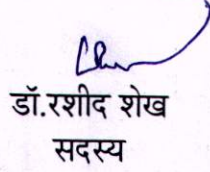 डॉ.रशीद शेख
सदस्य